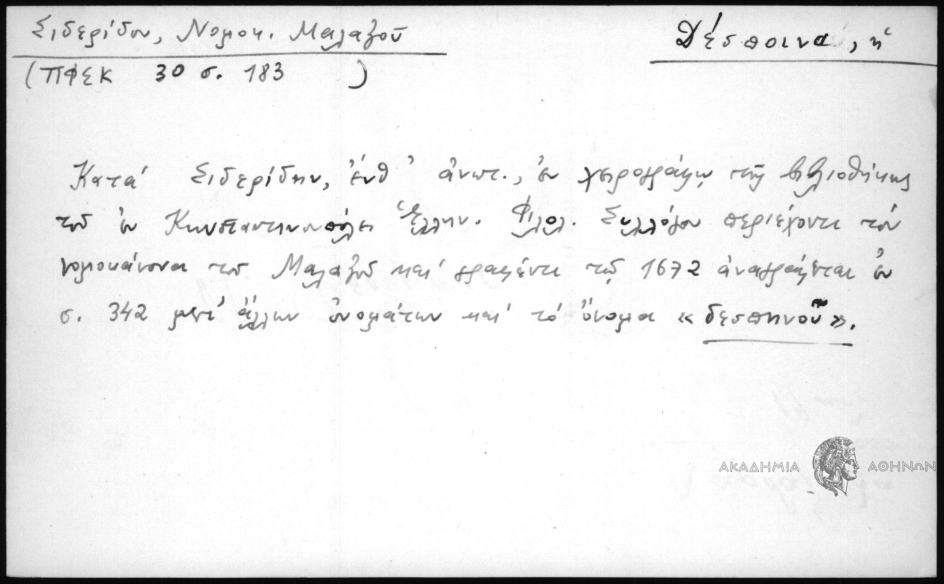 Σιδερίδου, Νομοκ. Μαλαξοῦ
Δέσποινα, ἡ
(ΠΦΣΚ 30 σ. 183 )
Κατά Σιδερίδην, ἔνθ' ἀνωτ., ἐν χειρογράφῳ τῆς βιβλιοθήκης
τοῦ ἐν Κωνσταντινουπόλει Ἑλλην. Φιλολ. Συλλόγου περιέχοντι τόν
νομοκάνονα τοῦ Μαλαξοῦ καί γραφέντι τῷ 1672 ἀναγράφεται ἐν
σ. 342 μετ' ἄλλων ὀνομάτων καί τό ὄνομα «δεσπηνοῦ».
ΑΚΑΔΗΜΙΑ ΑΘΗΝΩΝ